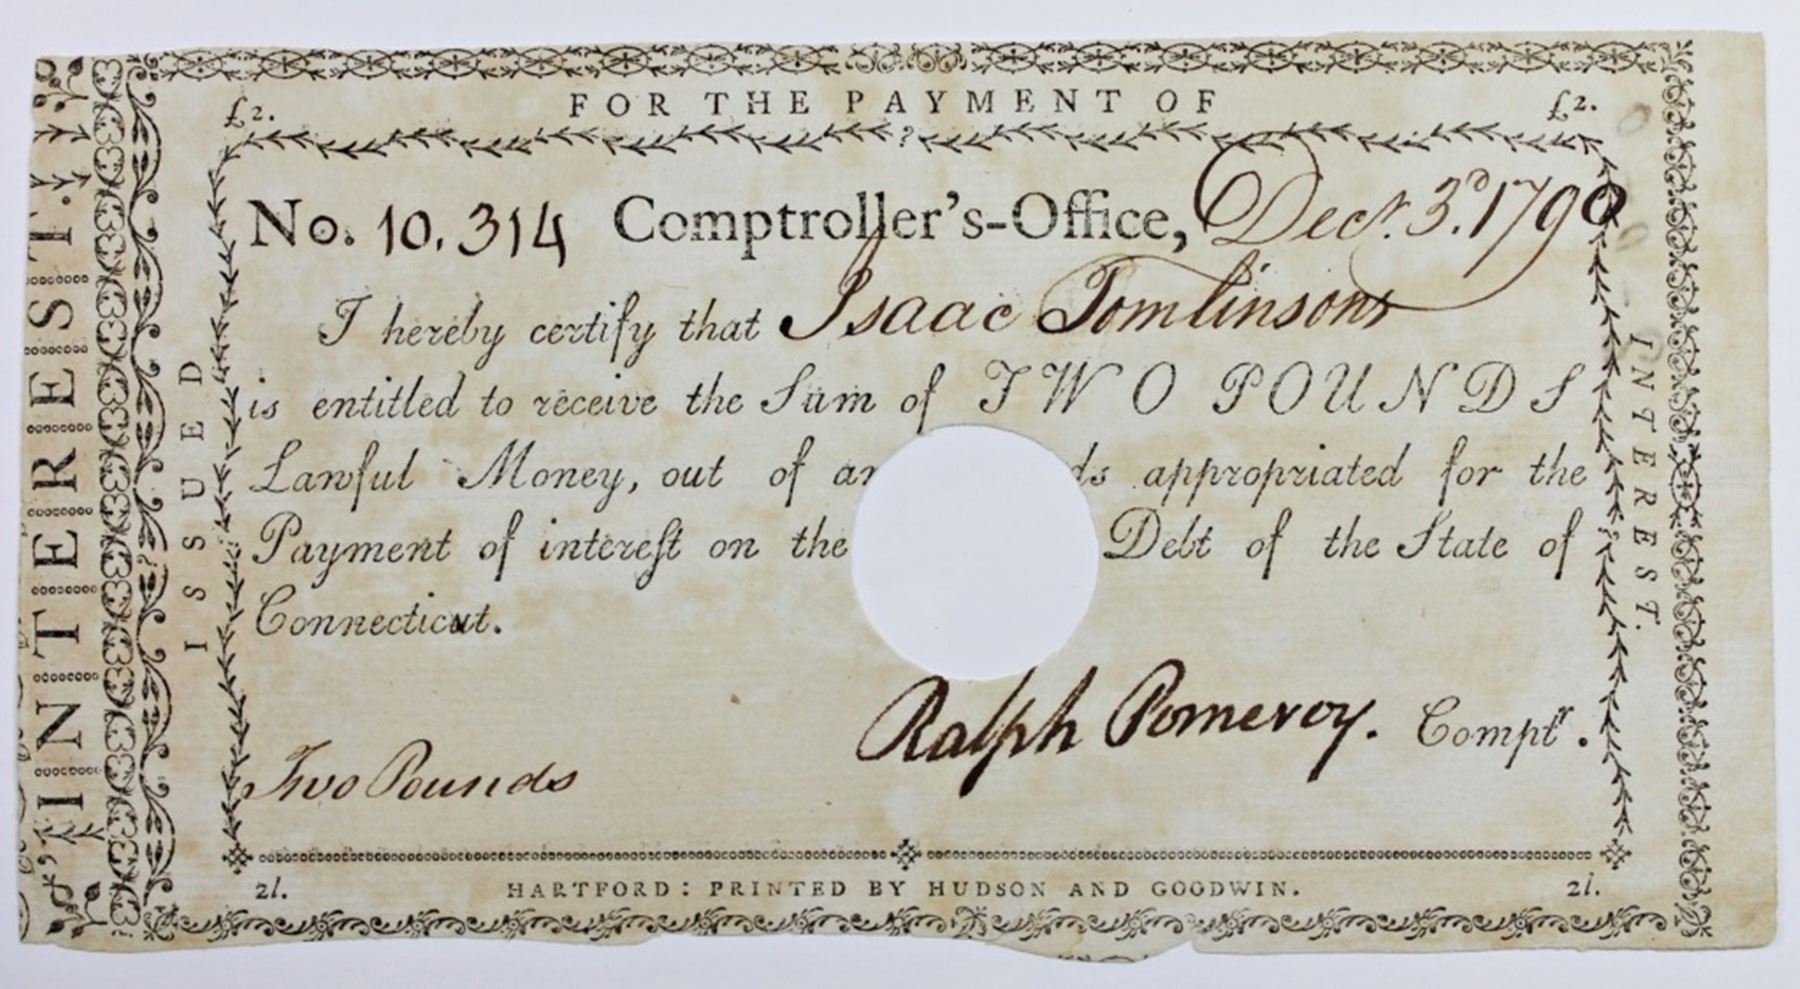 £2. FOR THE PAYMENT OF £2.
No. 10.314 Comptroller's-Office, Decr. 3d. 1790
I hereby certify that Isaac Tomlinsons
is entitled to receive the Sum of TWO POUNDS
Lawful Money, out of appropriated for the
Payment of intereſt on the Debt of the State of
Connecticut.
Ralph Pomeroy. Comptr.
Two Pounds
2l. HARTFORD: PRINTED BY HUDSON AND GOODWIN. 2l.
INTEREST.
ISSUED
INTEREST.